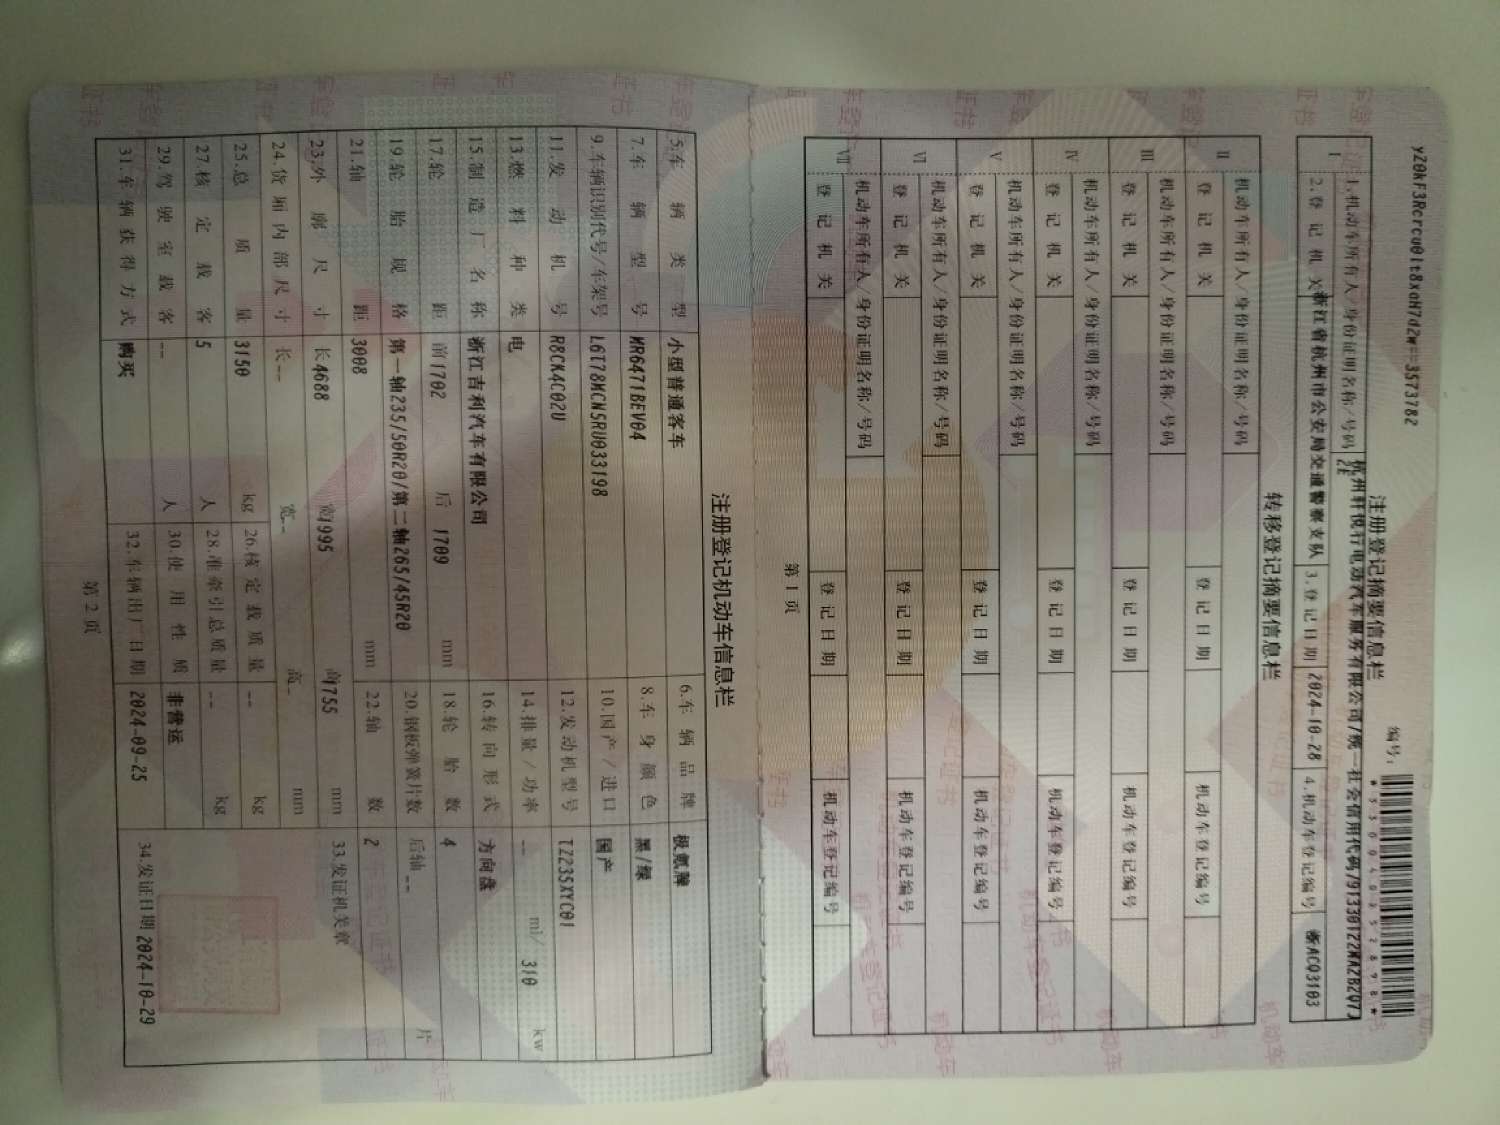 yZ0kF3Rcrcu0lt8xaH7dZw==3573782
注册登记摘要信息栏
编号:
I 1.机动车所有人/身份证明名称/号码 杭州轩悦行电动汽车服务有限公司/统一社会信用代码/
2.登记机关 浙江省杭州市公安局交通警察支队 3.登记日期 2024-10-28 4.机动车登记编号 浙ACQ3103
转移登记摘要信息栏
II 机动车所有人/身份证明名称/号码
登记机关 登记日期 机动车登记编号
III 机动车所有人/身份证明名称/号码
登记机关 登记日期 机动车登记编号
IV 机动车所有人/身份证明名称/号码
登记机关 登记日期 机动车登记编号
V 机动车所有人/身份证明名称/号码
登记机关 登记日期 机动车登记编号
VI 机动车所有人/身份证明名称/号码
登记机关 登记日期 机动车登记编号
VII 机动车所有人/身份证明名称/号码
登记机关 登记日期 机动车登记编号
第 1 页
注册登记机动车信息栏
5.车辆类型 小型普通客车 6.车辆品牌 极氪牌
7.车辆型号 MR6471BEV04 8.车身颜色 黑/绿
9.车辆识别代号/车架号 L6T78MCN5RU033198 10.国产/进口 国产
11.发动机号 R8CK4C02U 12.发动机型号 TZ235XYC01
13.燃料种类 电 14.排量/功率 -- ml/ 310 kw
15.制造厂名称 浙江吉利汽车有限公司 16.转向形式 方向盘
17.轮距 前1702 后 1709 mm 18.轮胎数 4
19.轮胎规格 第一轴235/50R20/第二轴265/45R20 20.钢板弹簧片数 后轴-- 片
21.轴距 3008 mm 22.轴数 2
23.外廓尺寸 长4688 宽1995 高1755 mm 33.发证机关章
24.货厢内部尺寸 长-- 宽-- 高- mm
25.总质量 3150 kg 26.核定载质量 -- kg
27.核定载客 5 人 28.准牵引总质量 -- kg
29.驾驶室载客 -- 人 30.使用性质 非营运
31.车辆获得方式 购买 32.车辆出厂日期 2024-09-25 34.发证日期 2024-10-29
第 2 页